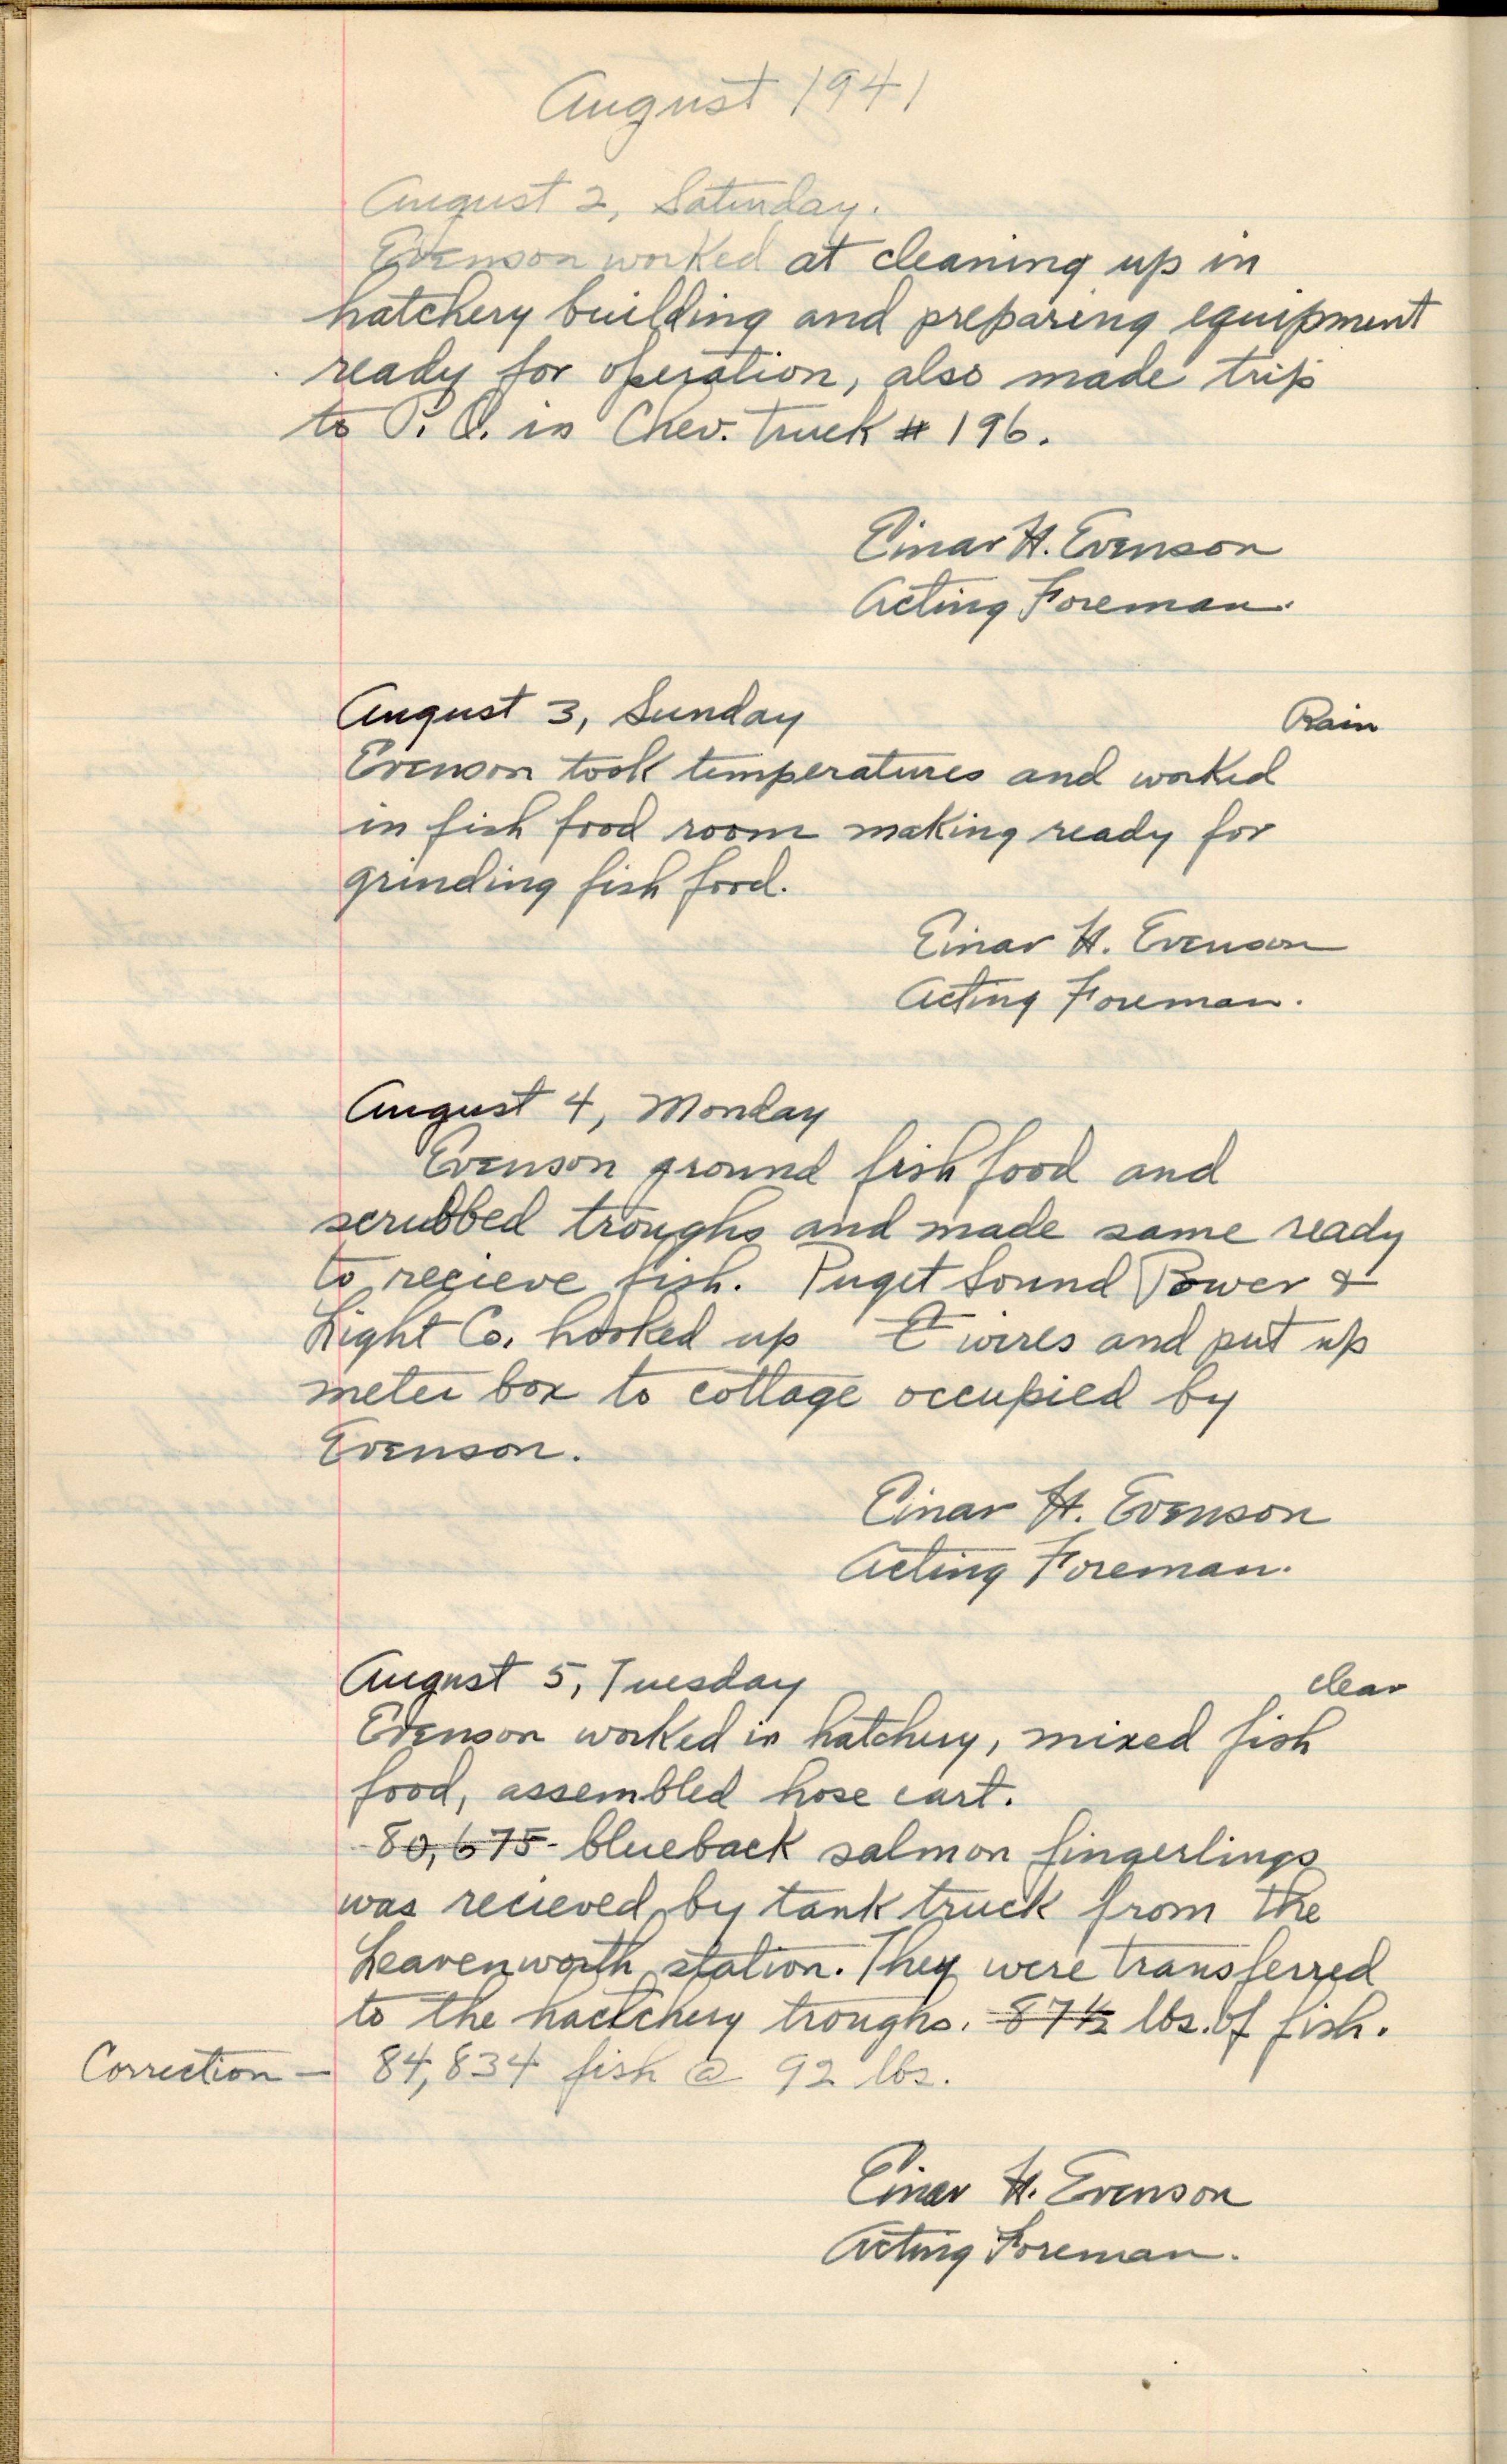 August 1941
August 2, Saturday.
Evenson worked at cleaning up in
hatchery building and preparing equipment
ready for operation, also made trip
to P.O. in Chev. truck # 196.
Einar H. Evenson
Acting Foreman.
August 3, Sunday Rain
Evenson took temperatures and worked
in fish food room making ready for
grinding fish food.
Einar H. Evenson
Acting Foreman.
August 4, Monday
Evenson ground fish food and
scrubbed troughs and made same ready
to recieve fish. Puget Sound Power &
Light Co. hooked up wires and put up
meter box to cottage occupied by
Evenson.
Einar H. Evenson
Acting Foreman.
August 5, Tuesday clear
Evenson worked in hatchery, mixed fish
food, assembled hose cart.
80,675 blueback salmon fingerlings
was recieved by tank truck from the
Leavenworth station. They were transferred
to the hactchery troughs. 87 1/2 lbs. of fish.
Correction — 84,834 fish @ 92 lbs.
Einar H. Evenson
Acting Foreman.